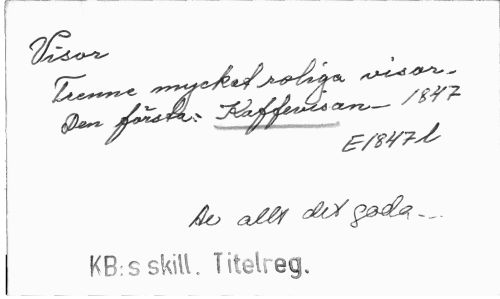 Visor
Trenne mycket roliga visor.
Den första: Kaffevisan 1847
E1847l
Av allt det goda...
KB:s skill. Titelreg.